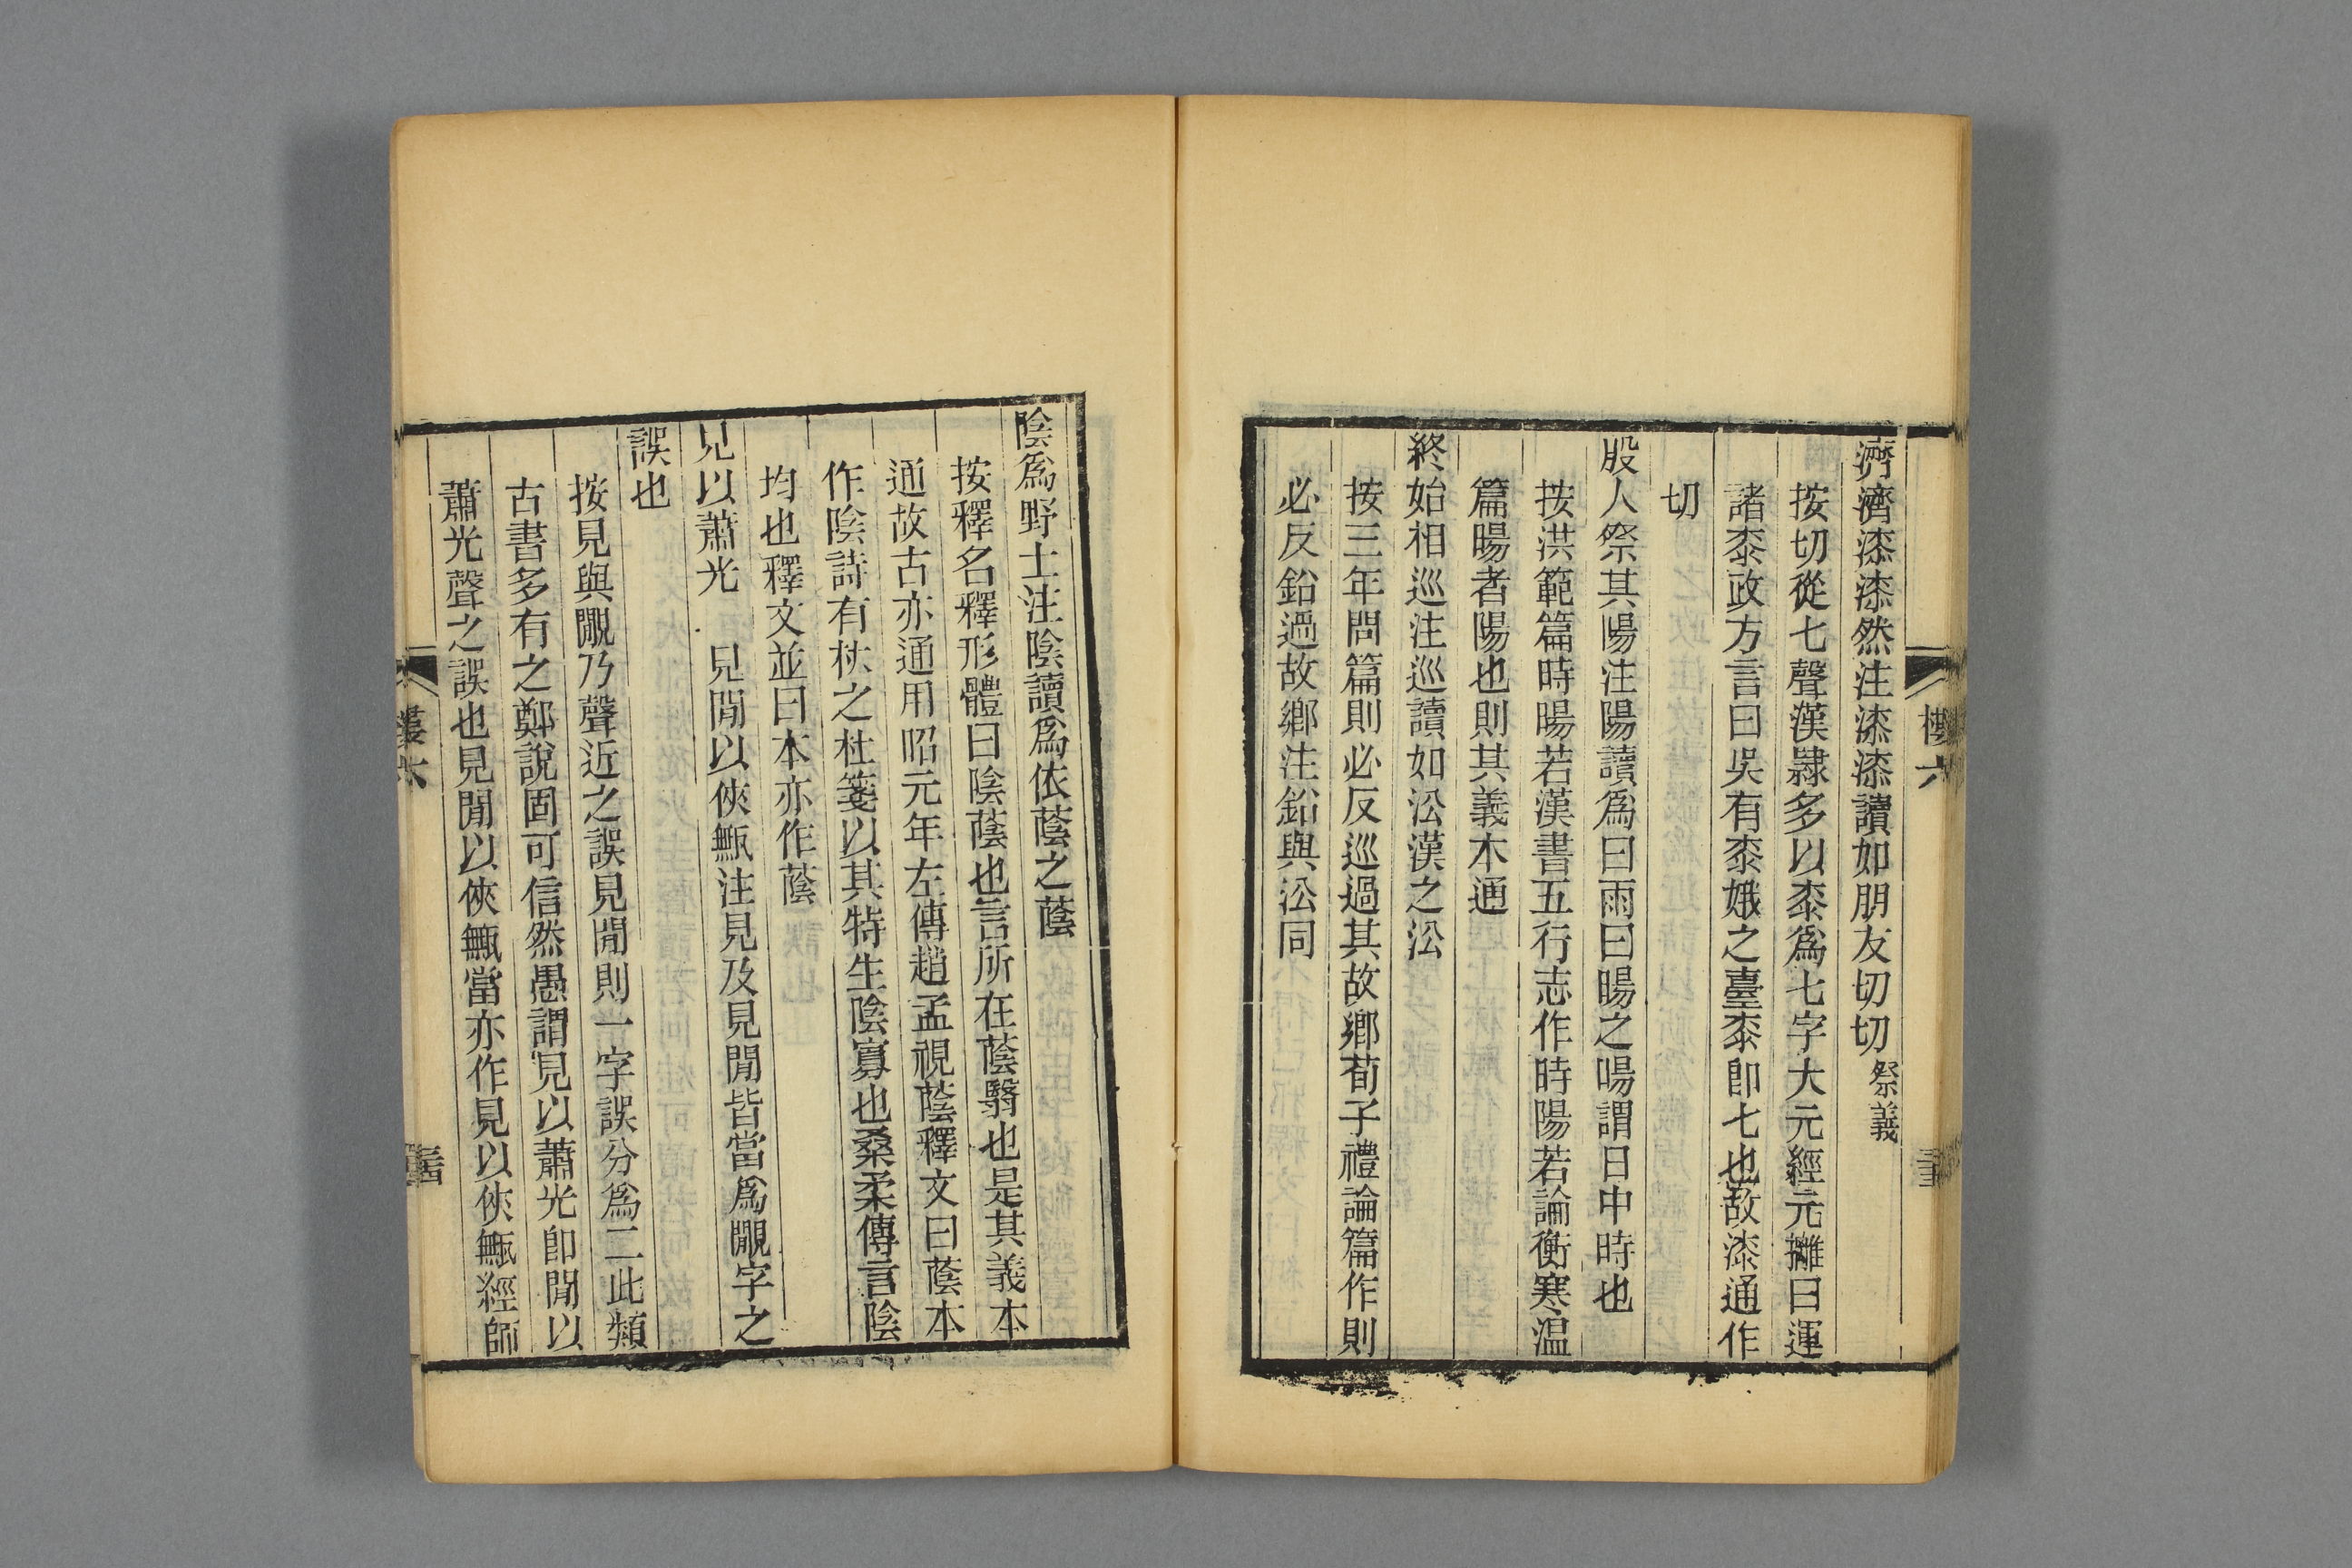 濟濟漆漆然注漆漆讀如朋友切切祭義
按切從七聲漢隸多以桼爲七字大元經元攡曰運
諸桼政方言曰吳有桼娥之臺桼卽七也故漆通作
切
殷人祭其陽注陽讀爲曰雨曰暘之暘謂日中時也
按洪範篇時暘若漢書五行志作時陽若論衡寒温
篇暘者陽也則其義本通
終始相巡注巡讀如沿漢之沿
按三年問篇則必反巡過其故鄉荀子禮論篇作則
必反鉛過故鄉注鉛與沿同
陰爲野土注陰讀爲依蔭之蔭
按釋名釋形體曰陰蔭也言所在蔭翳也是其義本
通故古亦通用昭元年左傳趙孟視蔭釋文曰蔭本
作陰詩有杕之杜箋以其特生陰寡也桑柔傳言陰
均也釋文並曰本亦作蔭
見以蕭光 見閒以俠甒注見及見閒皆當爲覸字之
誤也
按見與覸乃聲近之誤見閒則一字誤分爲二此類
古書多有之鄭說固可信然愚謂見以蕭光卽閒以
蕭光聲之誤也見閒以俠甒當亦作見以俠甒經師